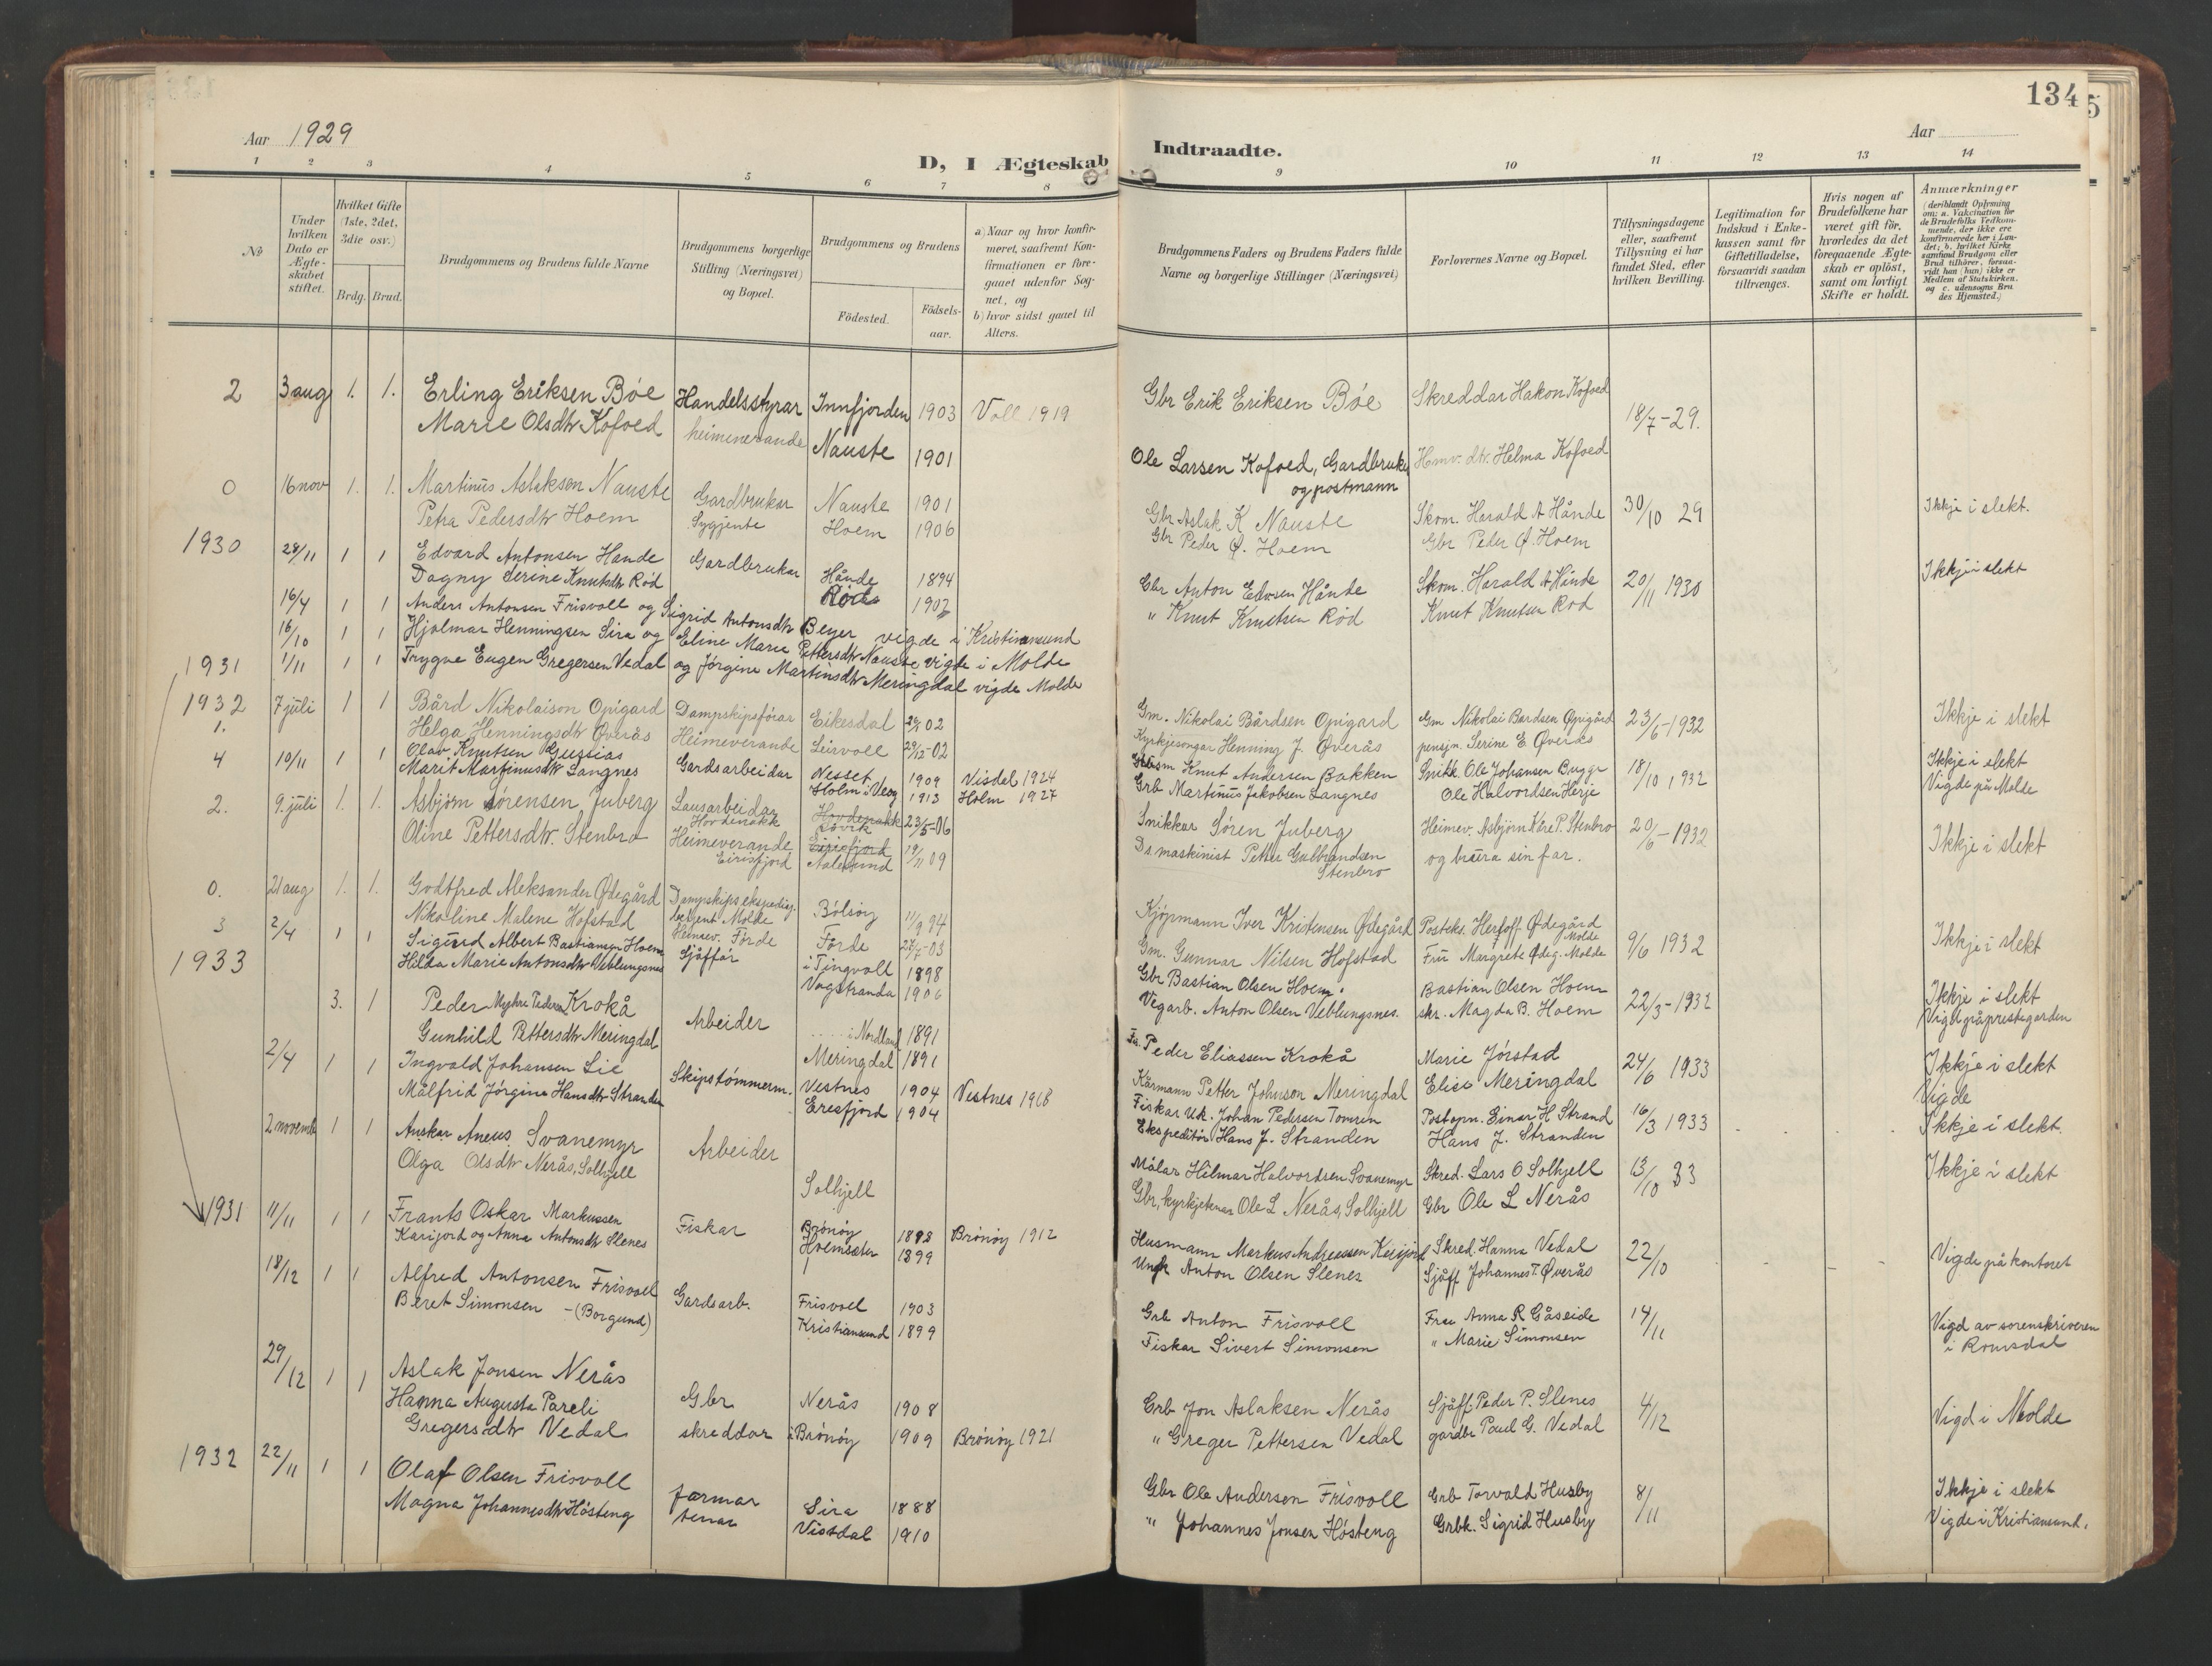 134
5
Aar 1929
D, I Ægteskab
Indtraadte.
Aar
1 2 3 4 5 6 7 8 9 10 11 12 13 14
No
Under hvilken Dato er Ægte-skabet stiftet.
Hvilket Gifte (1ste, 2det, 3die osv.)
Brdg. Brud.
Brudgommens og Brudens fulde Navne
Brudgommens borgerlige Stilling (Næringsvei) og Bopæl.
Brudgommens og Brudens
Födested.
Födsels-aar.
a) Naar og hvor konfir-meret, saafremt Kon-firmationen er fore-gaaet udenfor Sog-net, og
b) hvor sidst gaaet til Alters.
Brudgommens Faders og Brudens Faders fulde Navne og borgerlige Stillinger (Næringsvei)
Forlovernes Navne og Bopæl.
Tillysningsdagene eller, saafremt Tillysning ei har fundet Sted, efter hvilken Bevilling.
Legitimation for Indskud i Enke-kassen samt for Giftetilladelse, forsaavidt saadan tiltrænges.
Hvis nogen af Brudefolkene har været gift för, hvorledes da det foregaaende Ægte-skab er oplöst, samt om lovligt Skifte er holdt.
Anmærkninger (deriblandt Oplysning om: a. Vakcination for de Brudefolks Vedkom-mende, der ikke ere konfirmerede her i Lan-det; b. hvilket Kirke-samfund Brudgom eller Brud tilhörer, forsaa-vidt han (hun) ikke er Medlem af Statskirken. og c. udensogns Bru des Hjemsted.)
2 3 aug 1. 1. Erling Eriksen Bóe Handelsstyrar Innfjorden 1903 Voll 1919 Gbr Erik Eriksen Bóe Skreddar Hakon Kofoed 18/7-29.
Marie Olsdtr Kofoed heimeverande Nauste 1901 Ole Larsen Kofoed, Gardbrukar og postmann Hmv. dtr. Helma Kofoed
0 16 nov 1. 1. Martinus Aslaksen Nauste Gardbrukar Nauste 1901 Gbr Aslak K Nauste Skom. Harald A Hånde 30/10 29 Ikkje i slekt.
Petra Pedersdtr Hoem Sygjente Hoem 1906 Gbr Peder Ø. Hoem Gbr Peder Ø. Hoem
1930 28/11 1 1 Edvard Antonsen Hande Gardbrukar Hånde 1894 Gbr Anton Edvsen Hånde Skom. Harald A Hånde 20/11 1930 Ikkje i slekt
Dagny Serine Knutsdtr Rød Rød 1902 " Knut Knutsen Rød Knut Knutsen Rød
16/4 1 1 Anders Antonsen Frisvoll og Sigrid Antonsdtr Beyer vigde i Kristiansund
16/10 1 1 Hjalmar Henningsen Sira og Eline Marie Pettersdtr Nauste vigde i Molde
1931 1/11 1 1 Trygve Eugen Gregersen Vedal og Jórgine Martinsdtr Meringdal vigde Molde
1932 7 juli 1 1 Bård Nikolaison Opigard Dampskipsfórar Eikesdal 02 Gm. Nikolai Bårdsen Opigard Gm Nikolai Bardsen Opigård 23/6-1932 Ikkje i slekt
1. Helga Henningsdtr Øverås Heimeverande Leirvoll 29/12-02 Kyrkjesongar Henning J. Øverås pensjn. Serine E Øverås
4 10/11 1 1 Olav Knutsen Gussias Gardsarbeidar Nesset 1909 Visdel 1924 Husm Knut Andersen Bakken Snikk. Ole Johansen Bugge 18/10 1932 Ikkje i slekt
Marit Martinusdtr Langnes Holm i Veøy 1913 Holm 1927 Grb Martinus Jakobsen Langnes Ole Halvordsen Herje Vigde på Molde
2. 9. juli 1. 1. Asbjørn Sörensen Juberg Lausarbeidar Hovdenakk Hovdenakk Røvik 23/5-06 Snikkar Sóren Juberg Heimev. Asbjørn Kåre P. Stenbro 20/6-1932 Ikkje i slekt
Oline Pettersdtr. Stenbro Heimeverande Eirisfjord Eirisfjord Aalesund 19/11 09 Ds. maskinist Petter Gulbrandsen Stenbro og brura sin far.
0. 21 aug 1. 1. Godtfred Aleksander Ødegård Dampskipsekspedisj. betjent Molde Bólsóy 11/9 94 Kjópmann Iver Kristensen Ødegård Posteks. Herloff Ødegård Molde 9/6 1932 Ikkje i slekt
Nikoline Malene Hofstad Heimev. Fórde Fórde 27/7-03 Gm. Gunnar Nilsen Hofstad Fru Margrete Ødeg. Molde
3 2/4 1 1 Sigurd Albert Bastiansen Hoem Sjåffór i Tingvoll 1898 Gbr Bastian Olsen Hoem. Bastian Olsen Hoem 22/3-1932 Ikkje i slekt
1933 Hilda Marie Antonsdtr Veblungsnes Vågstranda 1906 Vegarb. Anton Olsen Veblungsnes. skr. Magda B. Hoem Vigd på prestegarden
3. 1 Peder Myhre Pedersen Krokå Arbeider i Nordland 1891 Fa. Peder Eliassen Krokå Marie Jórstad 24/6 1933 Ikkje i slekt
Gunhild Pettersdtr Meringdal Meringdal 1891 Kårmann Petter Johnson Meringdal Elise Meringdal Vigde
2/4 1 1 Ingvald Johansen Lie Skipstómmerm. Vestnes 1904 Vestnes 1918 Fiskar Uk. Johan Pedersen Tomren Postopn. Einar H Strand 16/3 1933 Ikkje i slekt.
Målfrid Jórgine Hansdtr Stranden Eresfjord 1904 Ekspeditør Hans J. Stranden Hans J. Stranden
2 novemb 1 1 Anskar Aneus Svanemyr Arbeider Målar Hilmar Halvordsen Svanemyr Skred. Lars O Solhjell 13/10 33 Ikkje i slekt
Olga Olsdtr Nerås, Solhjell Solhjell Gbr, kyrkjetenar Ole L Nerås, Solhjell Gbr Ole L Nerås
1931 11/11 1 1 Frants Oskar Markussen Fiskar Brónóy 1898 Brónóy 1912 Husmann Markus Andreassen Karijord Skred. Hanna Vedal 22/10 Vigde på kontoret
Karijord og Anna Antonsdtr Slenes Hoemsæter 1899 Ungk Anton Olsen Slenes Sjåff Johannes T. Øverås
18/12 1 1 Alfred Antonsen Frisvoll Gardsarb. Frisvoll 1903 Grb Anton Frisvoll Frau Anna R Gåseide 14/11 Vigd av sorenskriveren i Romsdal
Beret Simonsen - (Borgund) Kristiansund 1899 Fiskar Sivert Simonsen " Marie Simonsen
29/12 1 1 Aslak Jonsen Nerås Gbr Nerås 1908 Grb Jon Aslaksen Nerås Sjåff. Peder P. Slenes 4/12 Vigd i Molde
Hanna Augusta Pareli
Gregersdtr Vedal skreddar i Brónóy 1909 Brónóy 1921 " Greger Pettersen Vedal gardbr Poul G. Vedal
1932 22/11 1 1 Olaf Olsen Frisvoll farmar Sira 1888 Gbr Ole Andersen Frisvoll Grb Torvald Husby 8/11 Ikkje i slekt
Magna Johannesdtr Hósteng tenar Vistdal 1910 " Johannes Jonsen Hósteng Grbk. Sigrid Husby Vigde i Kristiansund.